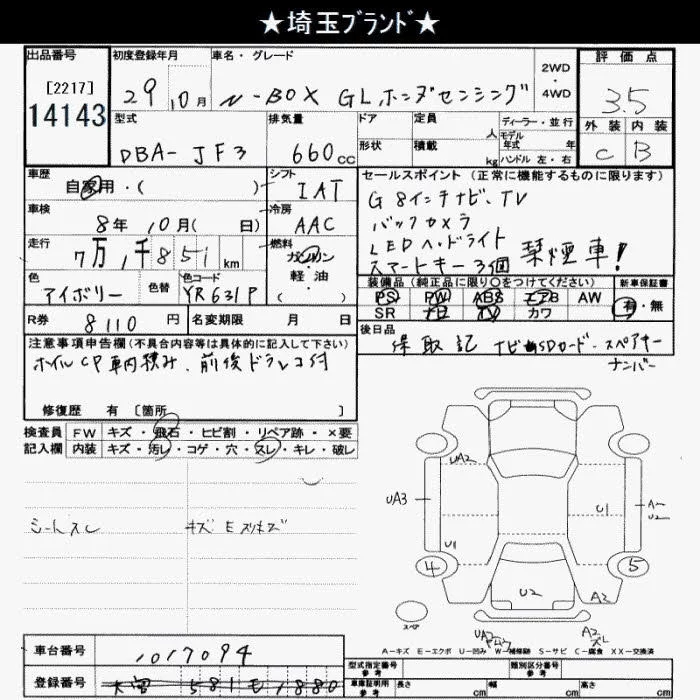 ★埼玉ﾌﾞﾗﾝﾄﾞ★
出品番号 初度登録年月 車名・グレード 2WD・4WD 評価点
[2217] 14143 29 10月 N-BOX GLホンダセンシング 3.5
型式 排気量 ドア 定員 人 ディーラー・並行 外装 内装
DBA-JF3 660cc 形状 積載 kg モデル年式 年 ハンドル 左・右 C B
車歴 自家用・( ) シフト IAT セールスポイント (正常に機能するものに限ります)
車検 8年10月( 日) 冷房 AAC G 8インチナビ、TV
バックカメラ
走行 7万1千851km 燃料 ガソリン・軽・油 ( ) LEDヘッドライト
スマートキー3個 禁煙車!
色 アイボリー 色替 色コード YR631P
装備品 (純正品に限り○をつけてください) 新車保証書
PS PW ABS エアB AW 有・無
SR ナビ TV カワ
R券 8110円 名変期限 月 日
後日品 保取記 ナビ用SDカード、スペアキー
ナンバー
注意事項申告欄 (不具合内容等は具体的に記入して下さい)
ホイルCP車内積み、前後ドラレコ付
修復歴 有 [箇所 ]
検査員記入欄 FW キズ・飛石・ヒビ割・リペア跡・×要
内装 キズ・汚レ・コゲ・穴・スレ・キレ・破レ
シートスレ キズ E スリキズ
UA2
UA3 U1 A U2
U1
4 5
U2 A2
スペア
UA2 A2 スレ
A-キズ E-エクボ U-凹み W-補修跡 S-サビ C-腐食 XX-交換済
車台番号 1017094
登録番号 大宮 581 1880
型式指定番号 参考 類別区分番号 参考
車庫証明用 参考 長さ cm 幅 cm 高さ cm